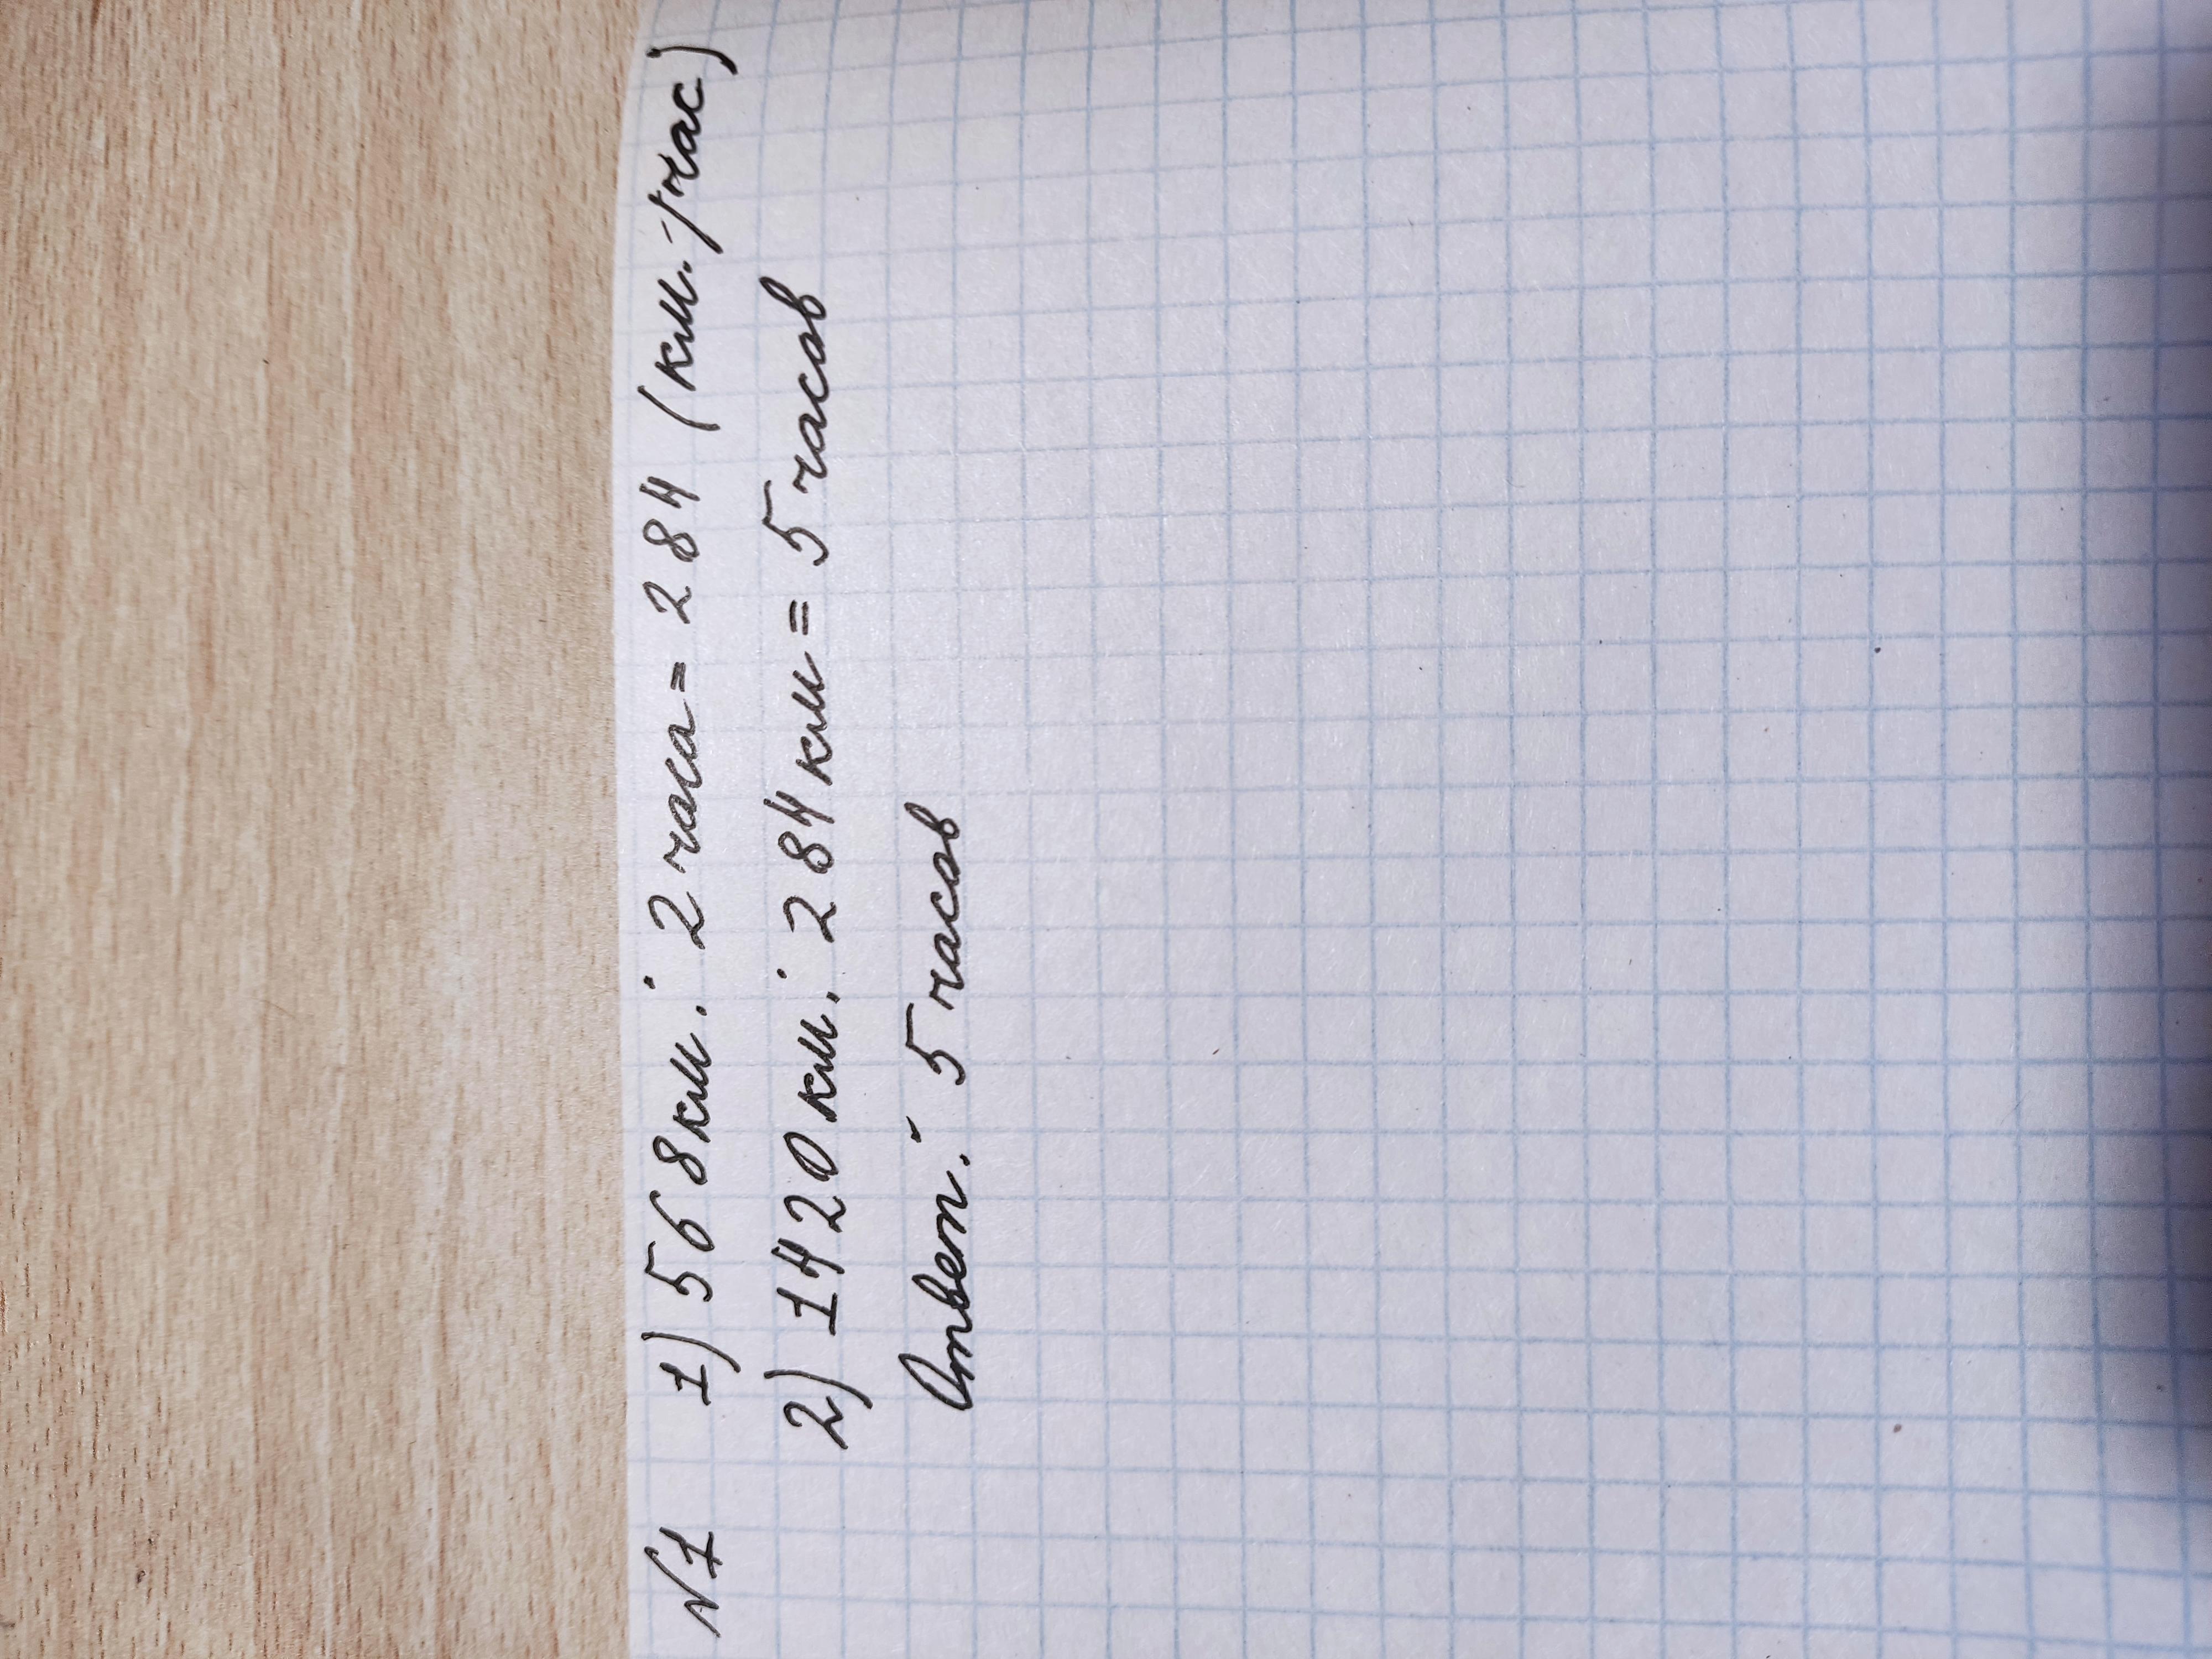 №1 1) 568км : 2 часа = 284 (км./час)
2) 1420км : 284км = 5 часов
Ответ: 5 часов